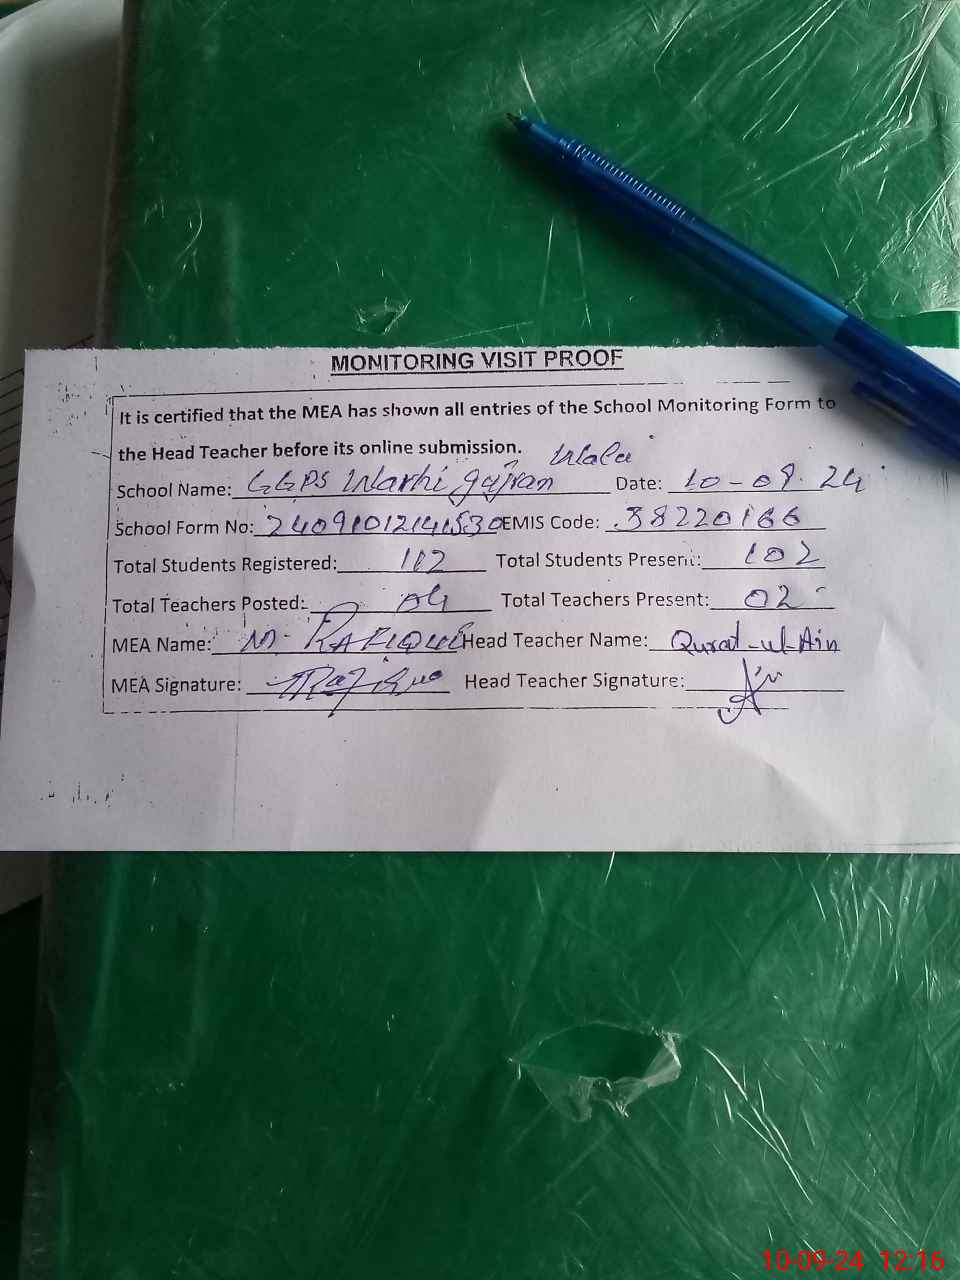 MONITORING VISIT PROOF
It is certified that the MEA has shown all entries of the School Monitoring Form to
the Head Teacher before its online submission.
Wala
School Name: GGPS Warhi gujran Date: 10-09-24
School Form No: EMIS Code: 38220166
Total Students Registered: 112 Total Students Present: 102
Total Teachers Posted: 04 Total Teachers Present: 02
MEA Name: M. RAFIQUE Head Teacher Name: Qurat-ul-Ain
MEA Signature: Head Teacher Signature:
10-09-24 12:16